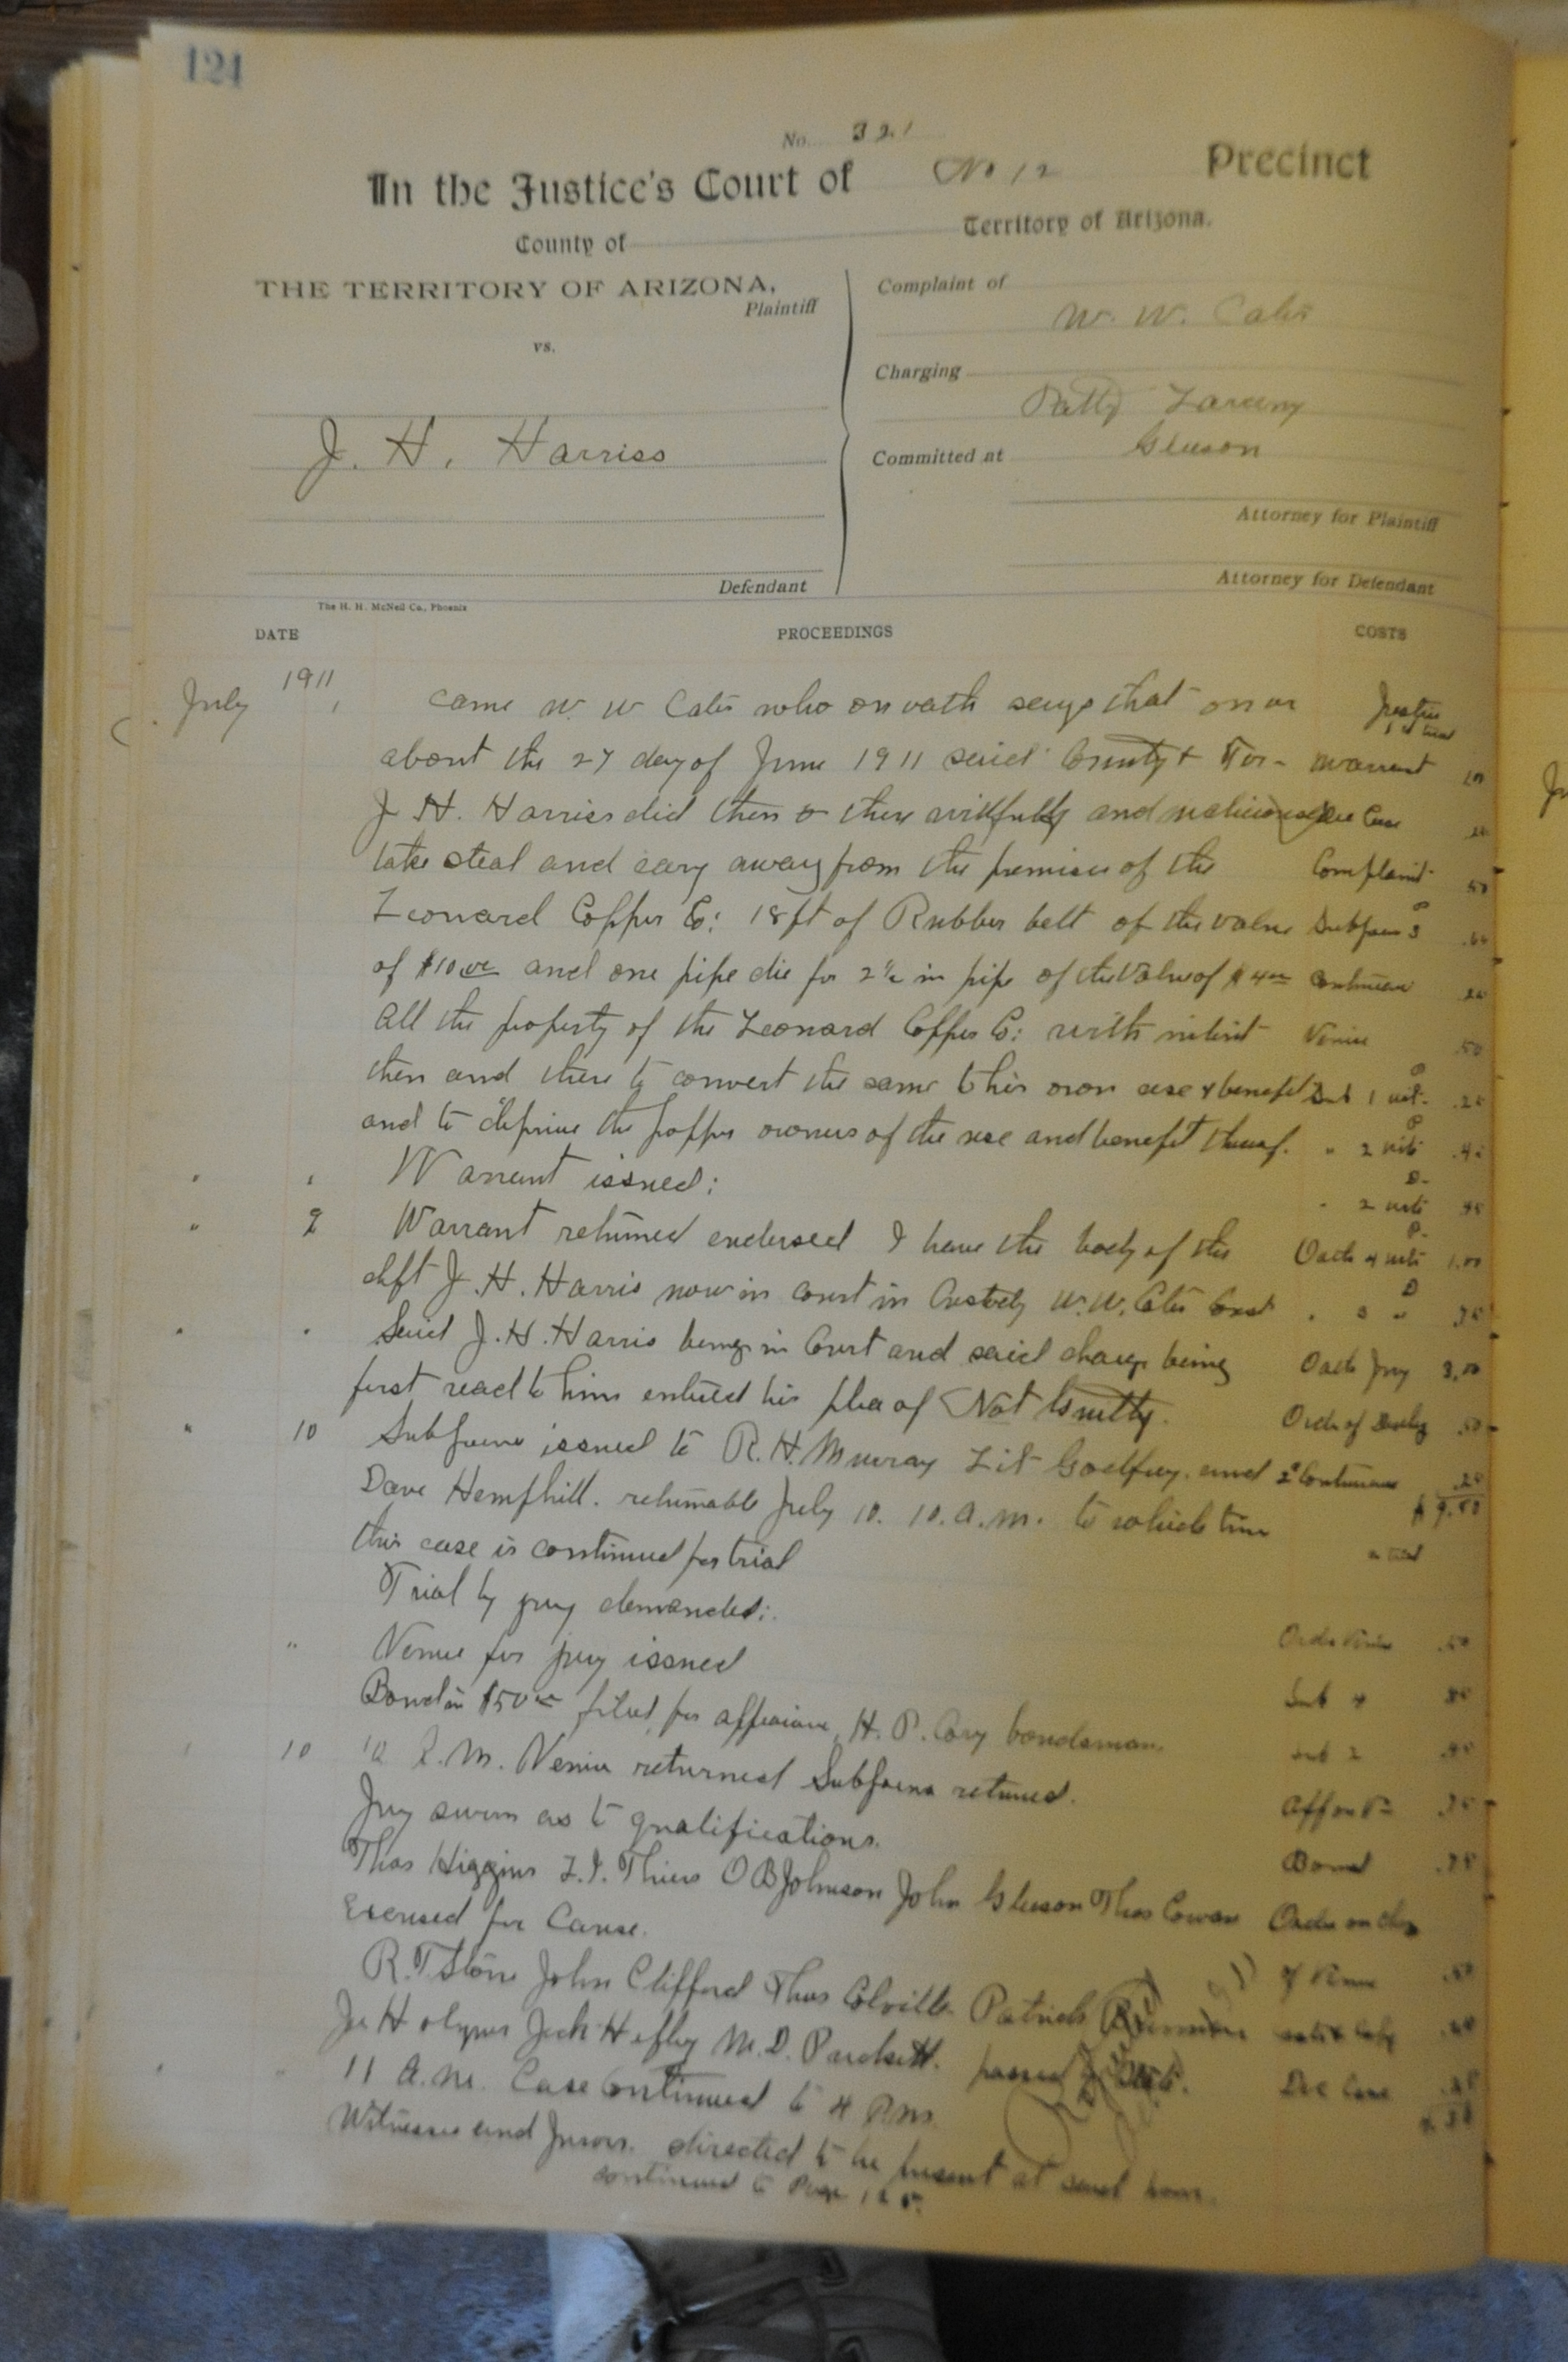 124
No. 321
In the Justice's Court of No 12 Precinct
County of Territory of Arizona.
THE TERRITORY OF ARIZONA,
Plaintiff
vs.
J. H. Harriss
Defendant
Complaint of
W. W. Cates
Charging
Patty Larceny
Committed at Gleeson
Attorney for Plaintiff
Attorney for Defendant
The H. H. McNeil Co., Phoenix
DATE PROCEEDINGS COSTS
July 1911 1 came W. W Cates who on oath says that on or Justice
about the 27 day of June 1911 said County & Ter- warrant
J H. Harris did then & there willfully and maliciously
take steal and cary away from the premises of the Complaint .50
Leonard Copper Co: 18 ft of Rubber belt of the value Subpoena 3
of $10.00 and one pipe die for 2½ in pipe of the Value of $4.00 Continuance
All the property of the Leonard Copper Co: with intent Venire .50
then and there to convert the same to his own use & benefit Sub 1 wit. .25
and to deprive the propper owners of the use and benefit thereof. " 2 wits
" " Warrant issued: " 2 wits
" 9 Warrant returned endorsed I have the body of the Oath 4 wits 1.00
deft J. H. Harris now in court in Custody W. W. Cates Const " 3 " .75
" " Said J. H. Harris being in Court and said charge being Oath Jury 3.00
first read to him entered his plea of Not Guilty. Order of .50
" 10 Subpoena issued to R. H. Murray Lit Godfrey. and 2d Continuance
Dave Hemphill. returnable July 10. 10. a.m. to which time $9.50
this case is continued for trial
Trial by jury demanded:
" Venire for jury issued Order Venire .50
Bond in $50.00 filed for appearance, H. P. Cory bondsman. Sub 4
10 10 A.M. Venire returned Subpoena returned. Sub 2
Jury sworn as to qualifications.
Thos Higgins L. J. Thiers O B Johnson John Gleeson Thos Cowan Bond .25
Excused for Cause.
R. T. Stone John Clifford Thos Colville Patrick of Venire .50
Joe Holmes Jack Hefley M. D. Puckett. passed
11 A.M. Case Continued to 4 P.M.
Witnesses and Jurors. directed to be present at said hour.
continued to Page 125